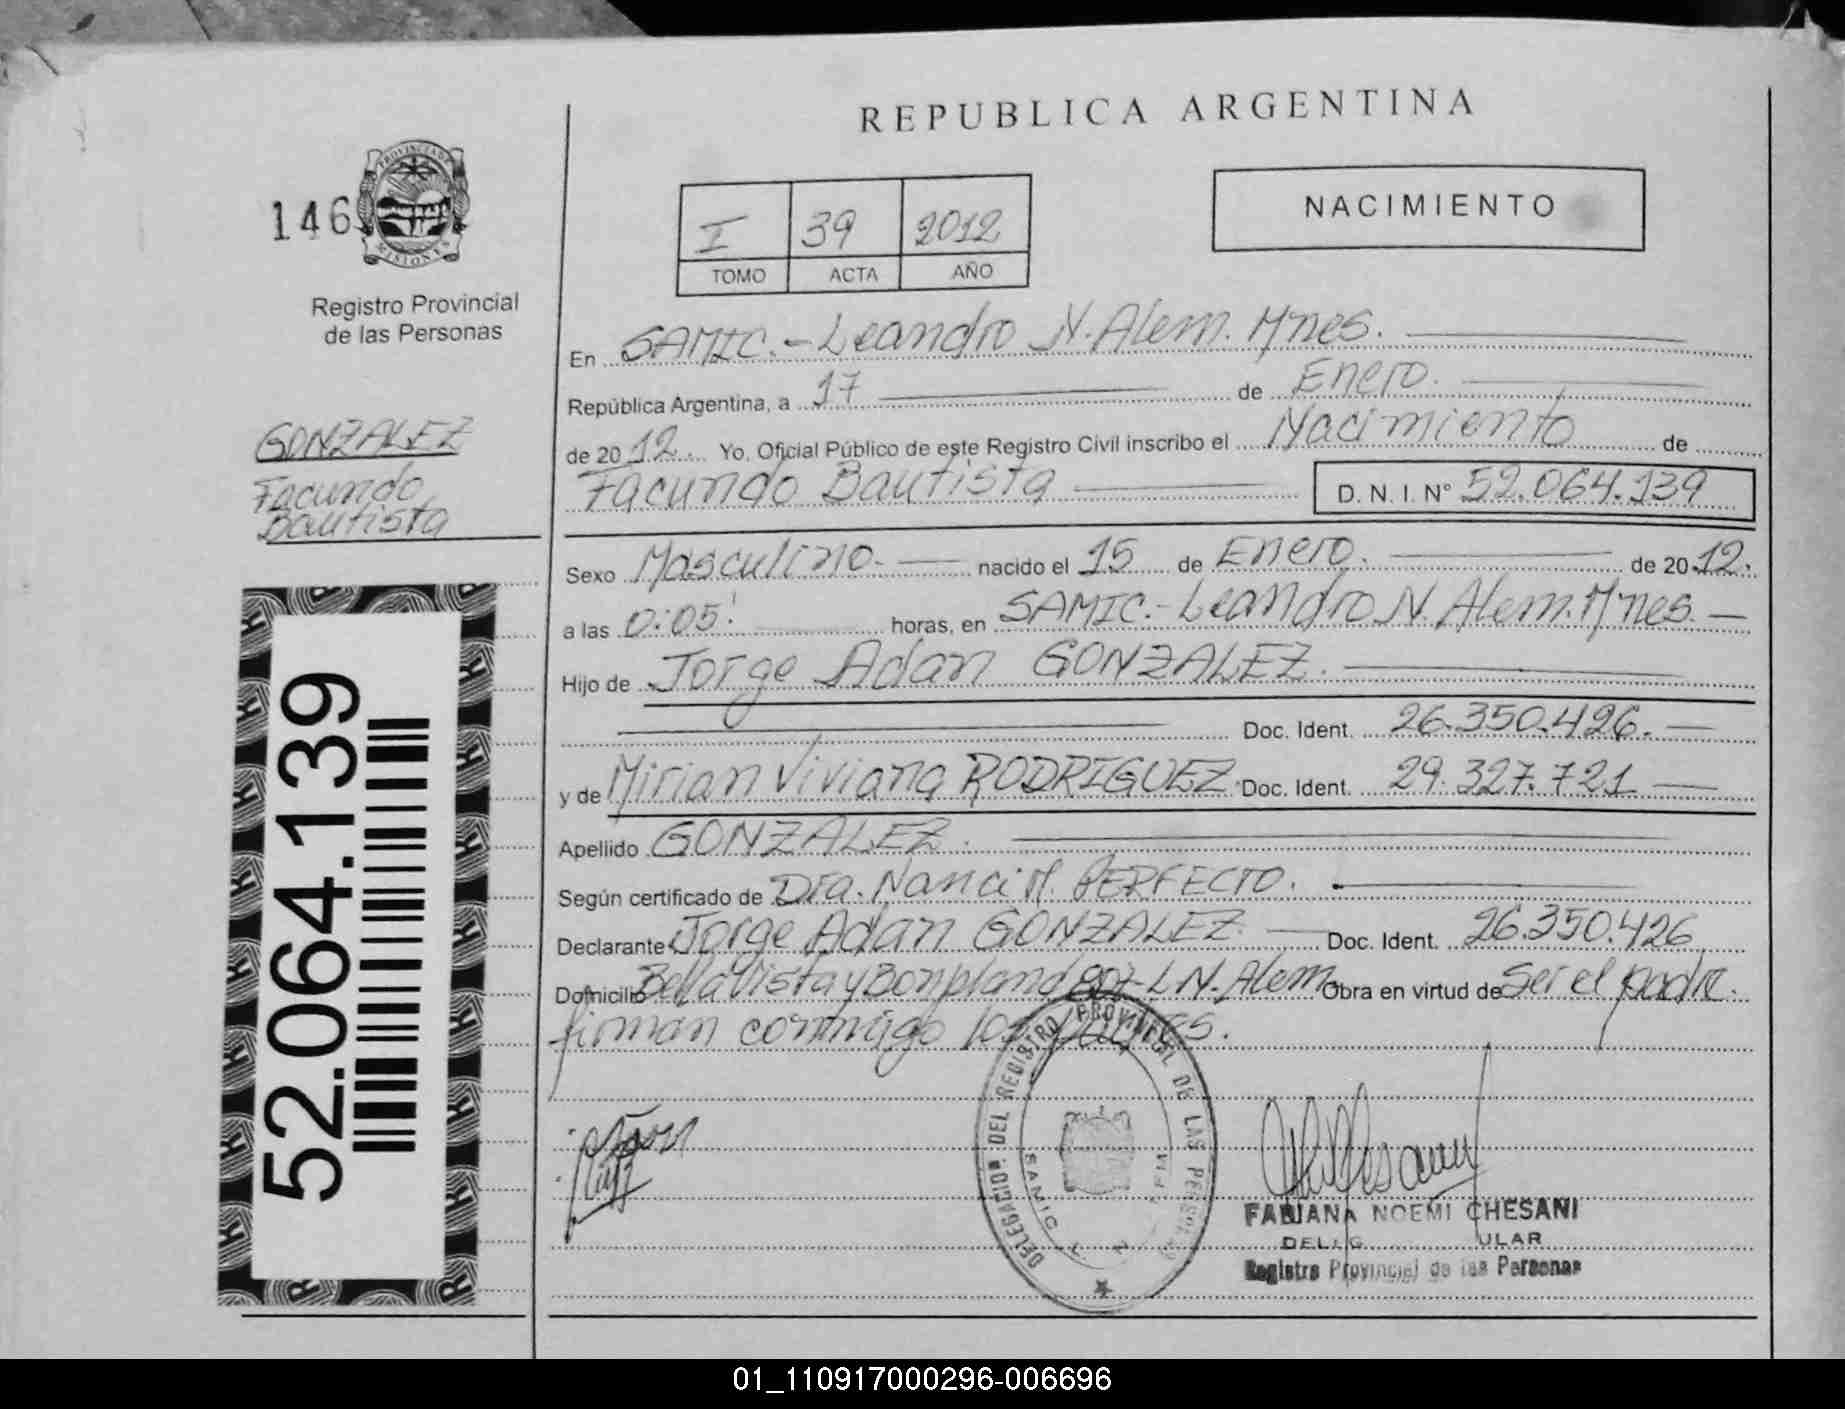 REPUBLICA ARGENTINA
146
PROVINCIA DE
MISIONES
Registro Provincial
de las Personas
I 39 2012
TOMO ACTA AÑO
NACIMIENTO
En SAMIC.- Leandro N. Alem. Mnes.
República Argentina, a 17 de Enero.
de 20 12. Yo, Oficial Público de este Registro Civil inscribo el Nacimiento de
Facundo Bautista D. N. I. Nº 52.064.139
GONZALEZ
Facundo
Bautista
Sexo Masculino.- nacido el 15 de Enero. de 20 12.
a las 0:05' horas, en SAMIC.- Leandro N. Alem. Mnes.
Hijo de Jorge Adan GONZALEZ.
Doc. Ident. 26.350.426.
y de Mirian Viviana RODRIGUEZ Doc. Ident. 29.327.721
Apellido GONZALEZ.
Según certificado de Dra. Nanci M. PERFECTO.
Declarante Jorge Adan GONZALEZ. Doc. Ident. 26.350.426
Domicilio Bella Vista y Bonpland L N. Alem. Obra en virtud de Ser el padre.
firman conmigo los
52.064.139
DELEGACION DEL REGISTRO PROVINCIAL DE LAS PERSONAS
SAMIC L. N.
FABIANA NOEMI CHESANI
Registro Provincial de las Personas
01_110917000296-006696